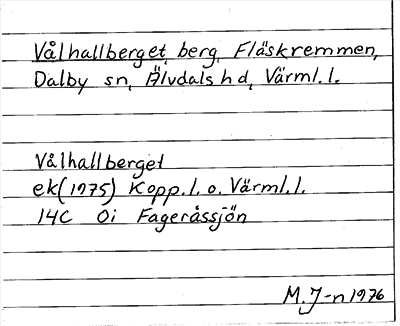 Vålhallberget, berg, Fläskremmen,
Dalby sn, Älvdals hd, Värml. l.
Vålhallberget
ek(1975) Kopp. l. o. Värml. l.
14C 0i Fageråssjön
M. J-n 1976